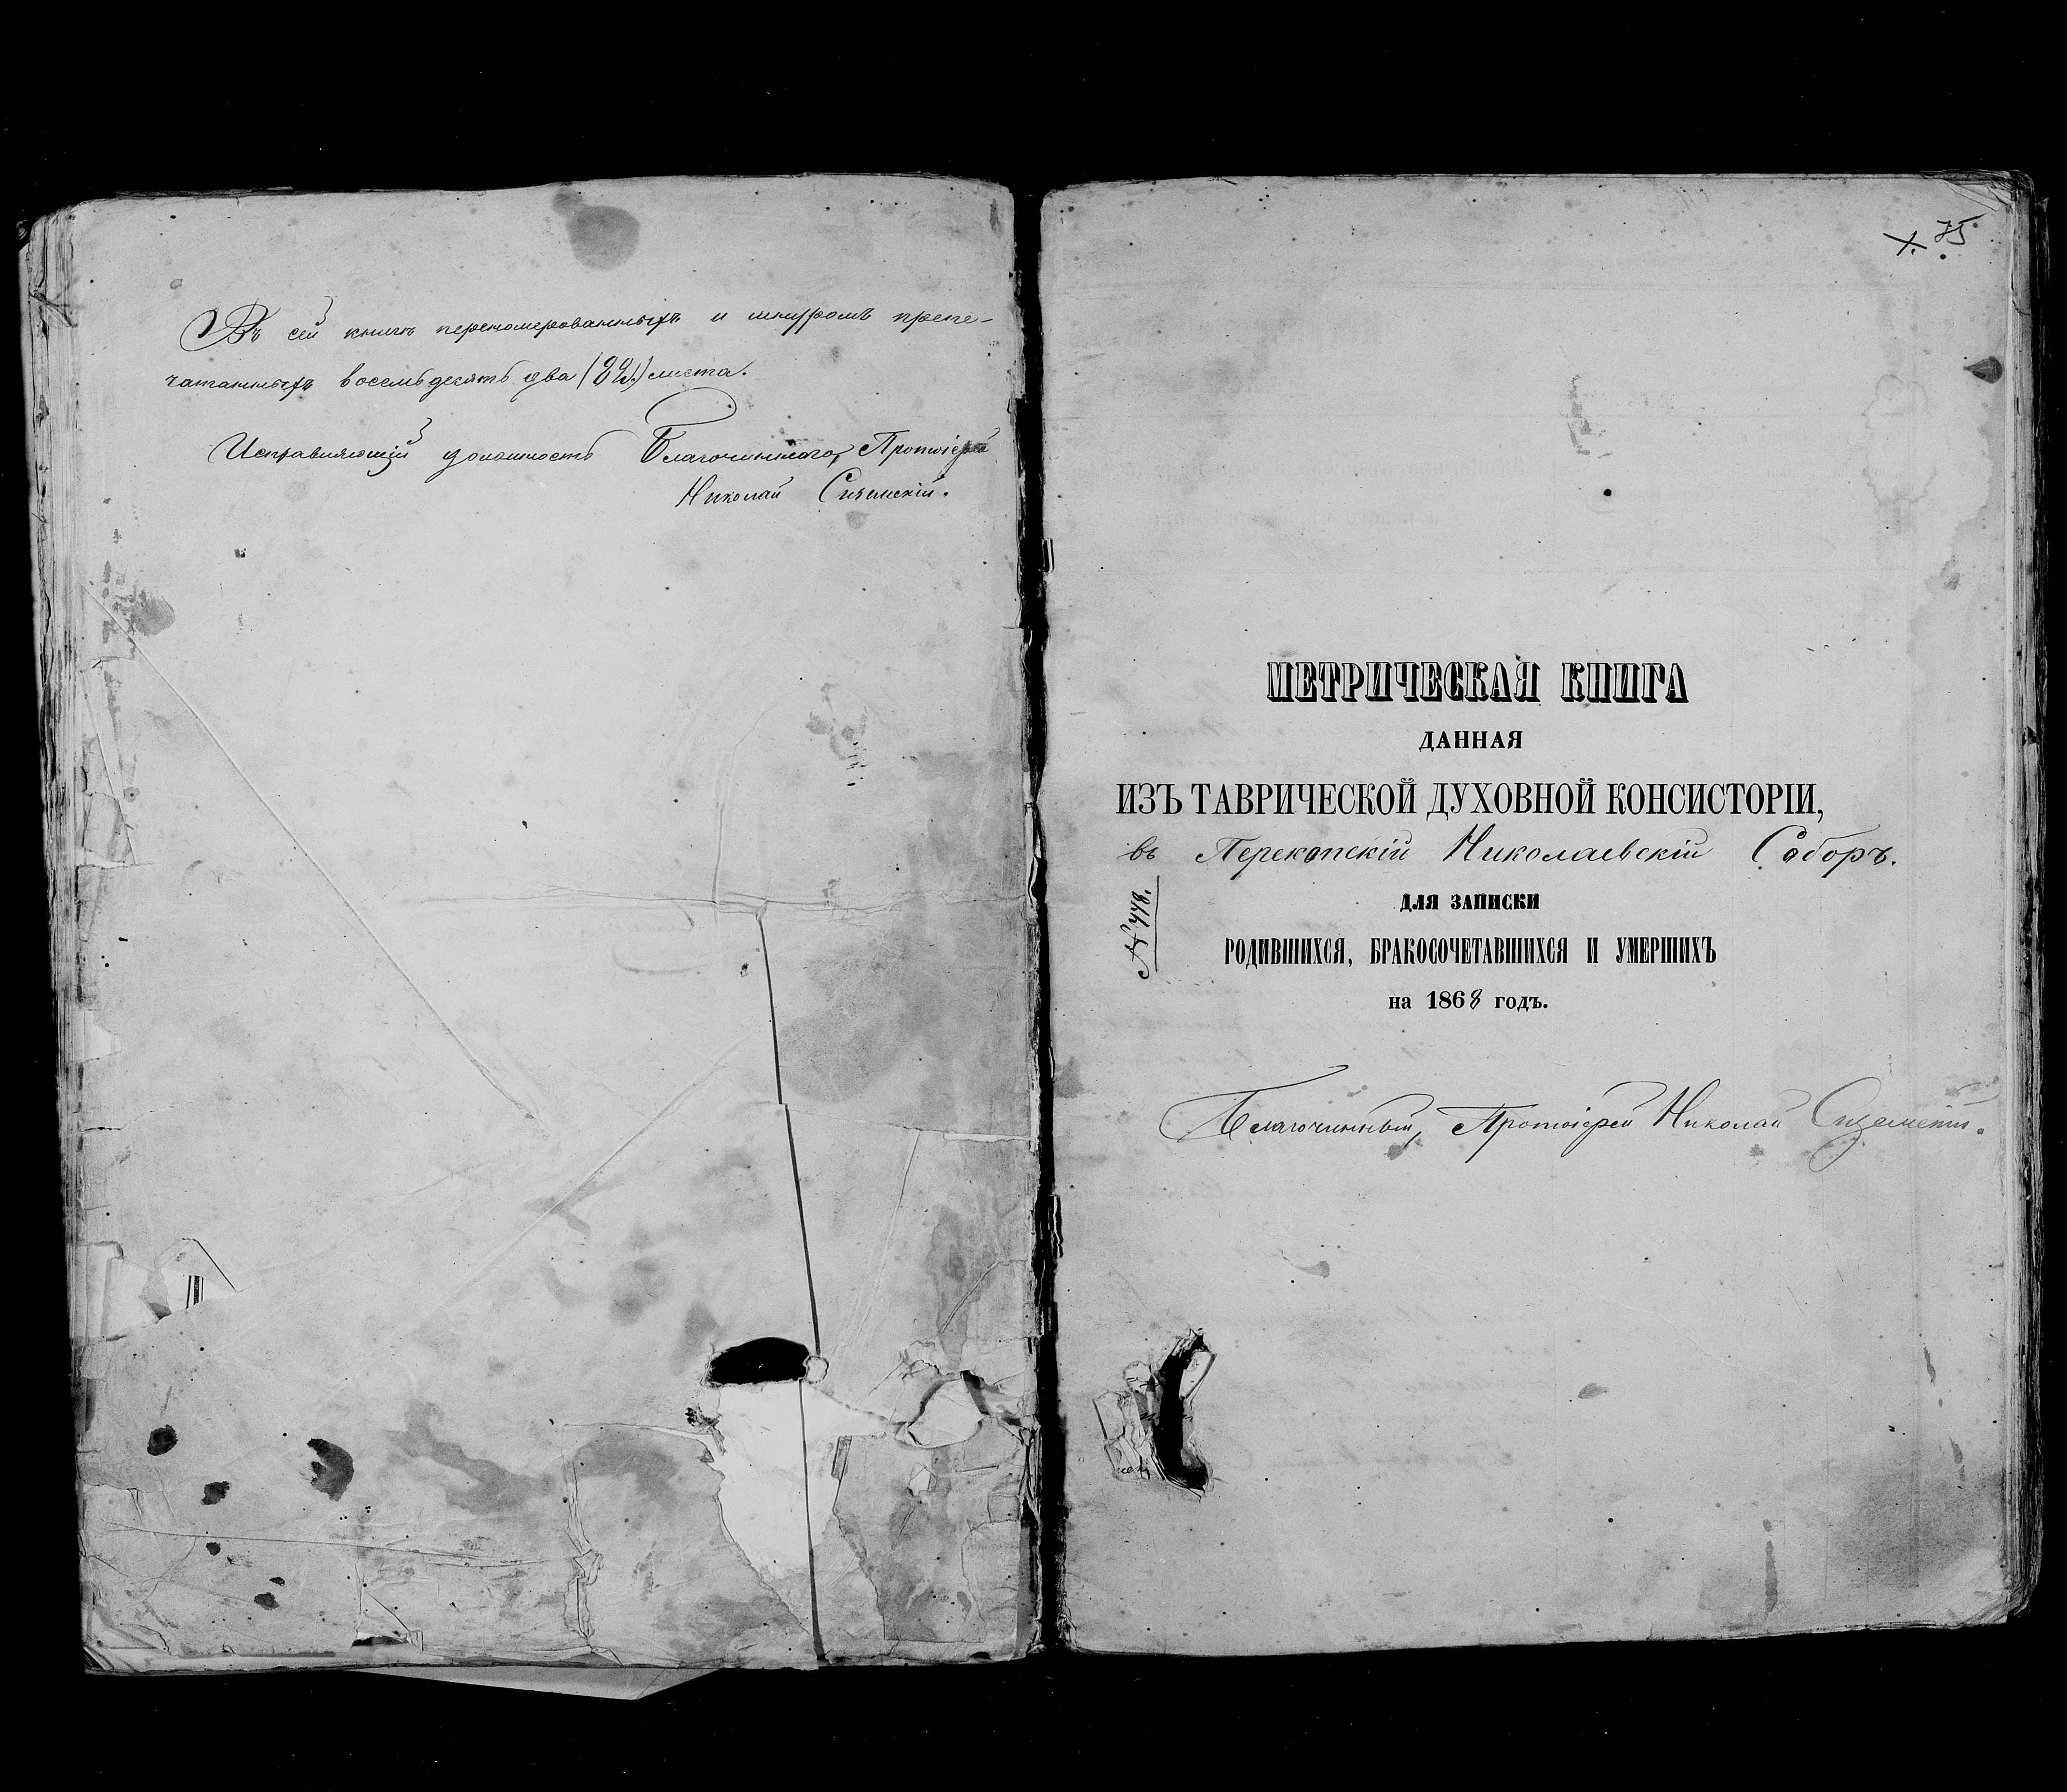 Въ сей книгѣ перенумерованныхъ и шнуромъ препе-
чатанныхъ восемьдесятъ два (82.) листа.
Исправляющій должность Благочиннаго, Протоіерей
Николай
75
МЕТРИЧЕСКАЯ КНИГА
ДАННАЯ
ИЗЪ ТАВРИЧЕСКОЙ ДУХОВНОЙ КОНСИСТОРІИ,
въ Перекопскій Николаевскій Соборъ.
ДЛЯ ЗАПИСКИ
РОДИВШИХСЯ, БРАКОСОЧЕТАВШИХСЯ И УМЕРШИХЪ
на 1868 годъ.
Благочинный, Протоіерей Николай